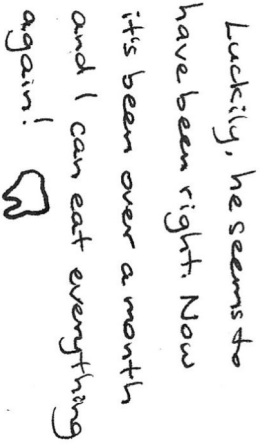 Luckily, he seems to
have been right. Now
it's been over a month
and I can eat everything
again!